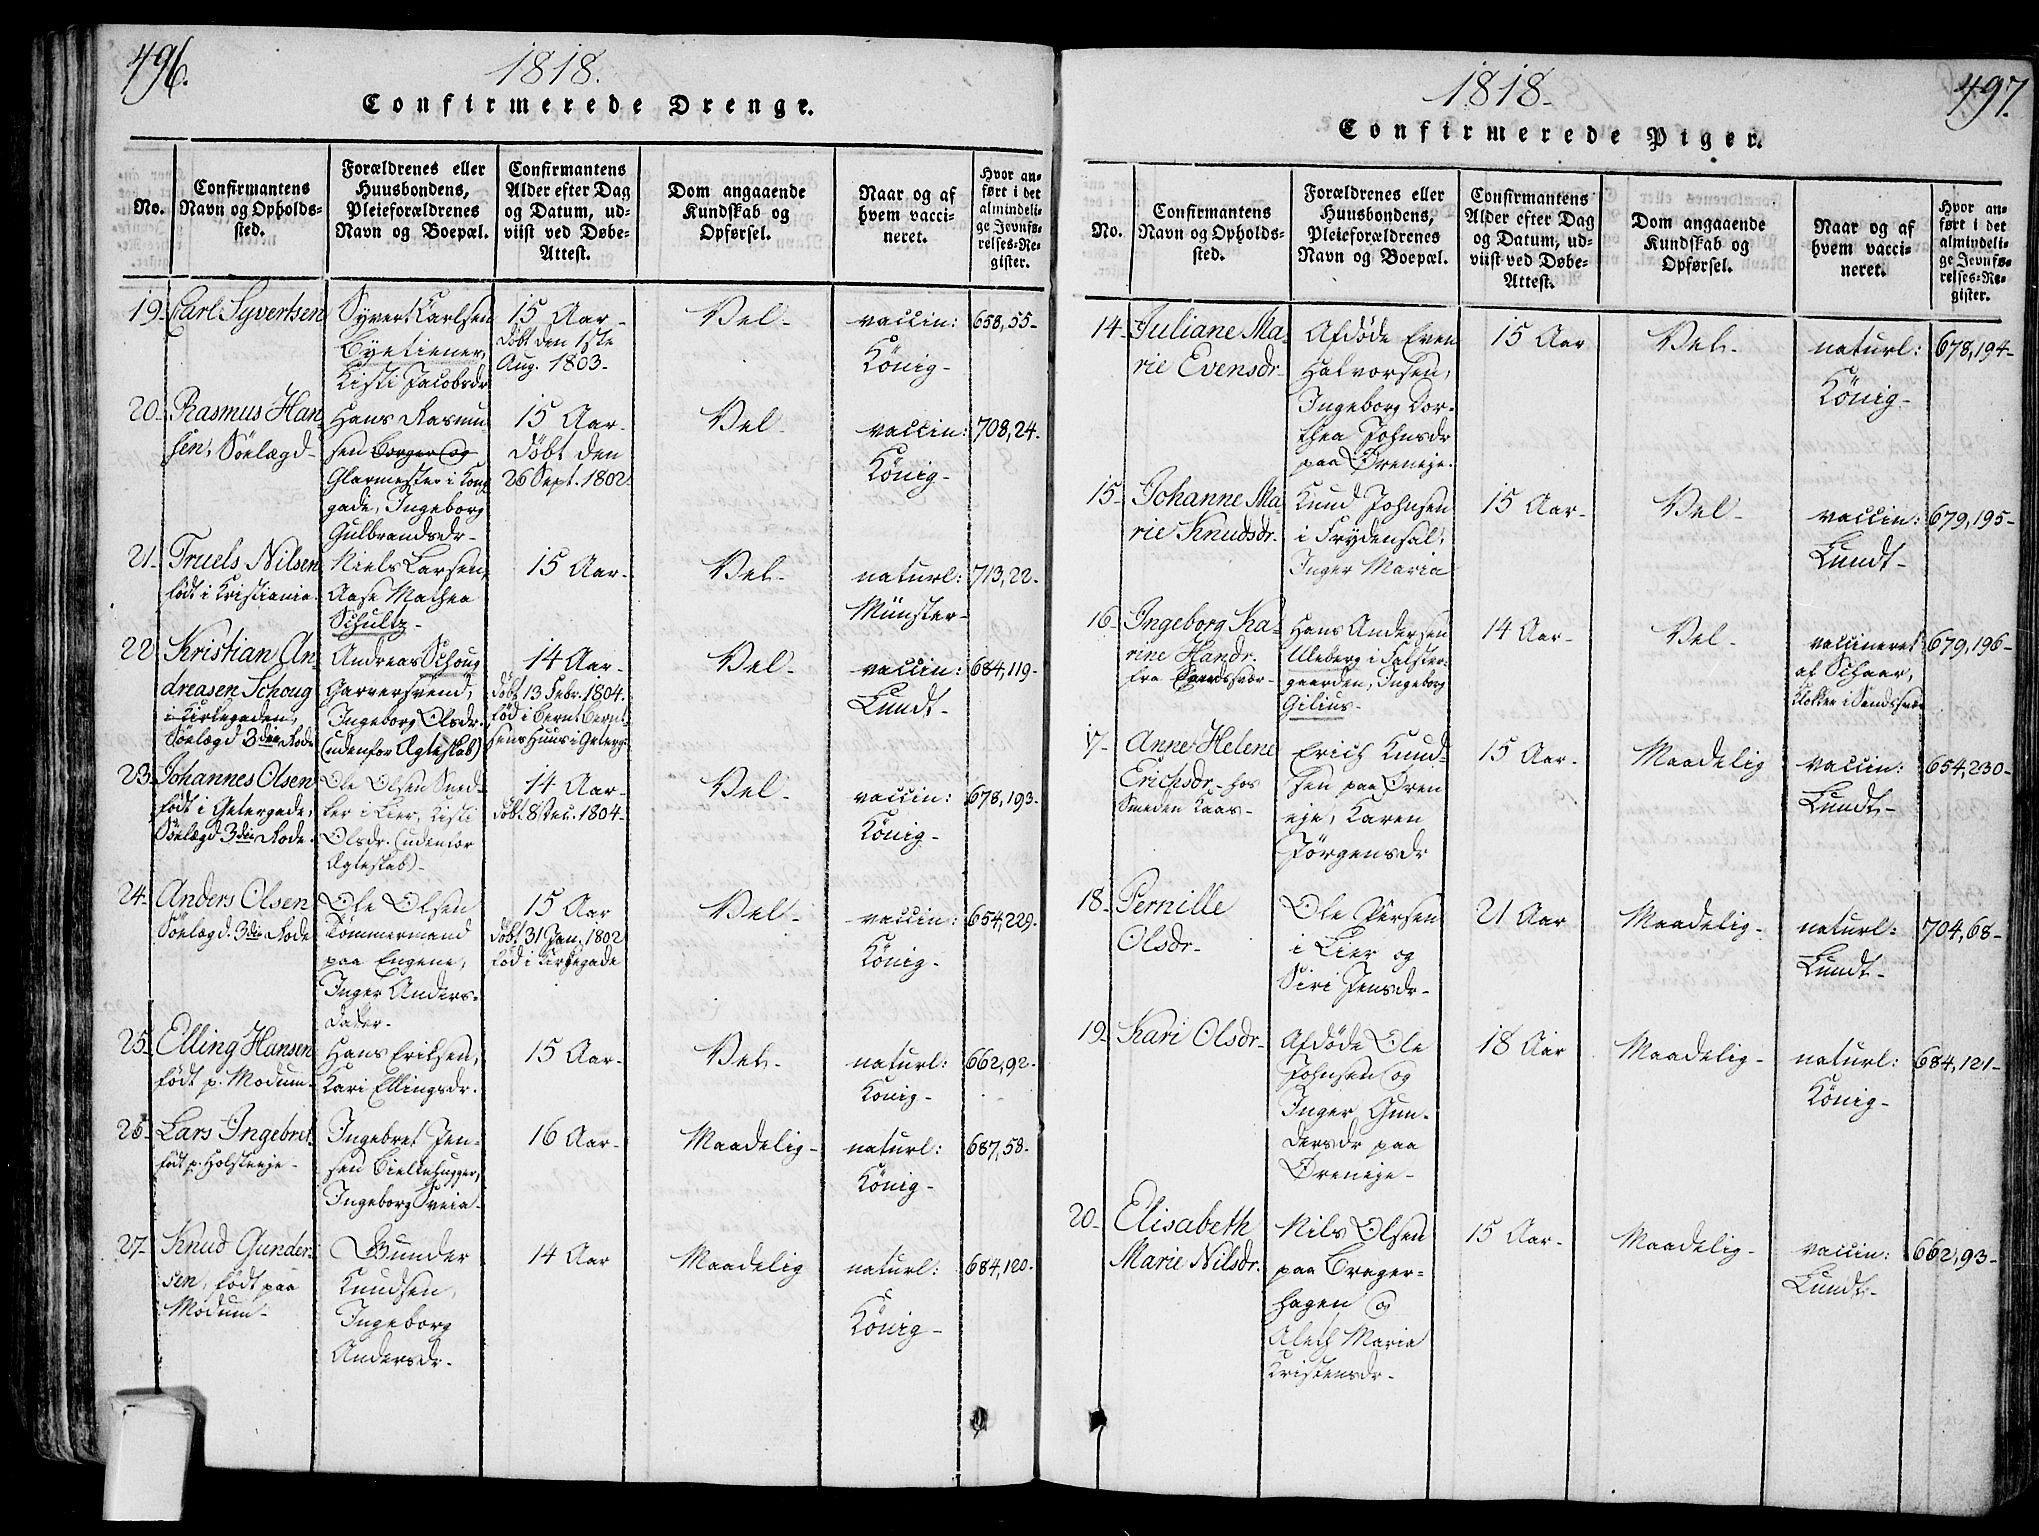 496.
1818.
Confirmerede Drenge.
No.
Confirmantens
Navn og Opholds-
sted.
Forældrenes eller
Huusbondens,
Pleieforældrenes
Navn og Boepæl.
Confirmantens
Alder efter Dag
og Datum, ud-
viist ved Døbe-
Attest.
Dom angaaende
Kundskab og
Opførsel.
Naar og af
hvem vacci-
neret.
Hvor an-
ført i det
almindeli-
ge Jevnfø-
relses-Re-
gister.
19-
Carl Syvertsen
Syvert Karlsen
Byetiener,
Kisti Jacobsdr
15 Aar-
döbt den 1ste
Aug. 1803-
Vel-
vaccin:
König-
658,55-
20-
Rasmus Han-
sen, Söelægd-
Hans Rasmu-
sen Borger og
Glarmester i Kong-
gade, Ingeborg
Gulbrandsdr-
15 Aar-
döbt den
26 Sept. 1802.
Vel-
vaccin:
König-
708,24-
21-
Truels Nilsen
født i Kristiania-
Niels Larsen,
Aase Mathea
Schultz-
15 Aar-
Vel-
naturl:
Münster-
713,22-
22
Kristian An-
dreasen Schoug
i Kirkegaden,
Söelægd 3die Rode
Andreas Schoug
Garversvend,
Ingeborg Olsdr.
(udenfor Ægteskab)
14 Aar-
döbt 13 Febr. 1804.
fød i Bernt Bernt-
sens Huus i Geterg-
Vel-
vaccin:
Lundt-
684,119-
23-
Johannes Olsen
født i Getergade,
Söelægd 3die Rode.
Ole Olsen Sned-
ker i Lier, Kisti
Olsdr. (udenfor
Ægteskab)-
14 Aar-
döbt 8 Dec. 1804-
Vel-
vaccin:
König-
678,193-
24-
Anders Olsen
Söelægd. 3die Rode
Ole Olsen
Tömmermand
paa Engene,
Inger Anders-
dater-
15 Aar
döbt 31 Jan. 1802
fød i Kirkegade
Vel-
vaccin:
König-
654,229-
25-
Elling Hansen
født p. Modum-
Hans Eriksen,
Kari Ellingsdr.
15 Aar-
Vel-
naturl:
König-
662,92-
26-
Lars Ingebret.
født p. Holsteeje-
Ingebret Jen-
sen Bielkehugger,
Ingeborg Sveia-
16 Aar-
Maadelig-
naturl:
König-
687,58-
27-
Knud Gunder-
sen, født paa
Modum-
Gunder
Knudsen,
Ingeborg
Andersdr-
14 Aar
Maadelig
naturl:
König-
684,120-
1818-
497.
Confirmerede Piger.
No.
Confirmantens
Navn og Opholds-
sted.
Forældrenes eller
Huusbondens,
Pleieforældrenes
Navn og Boepæl.
Confirmantens
Alder efter Dag
og Datum, ud-
viist ved Døbe-
Attest.
Dom angaaende
Kundskab og
Opførsel.
Naar og af
hvem vacci-
neret.
Hvor an-
ført i det
almindeli-
ge Jevnfø-
relses-Re-
gister.
14-
Juliane Ma-
rie Evensdr-
Afdöde Even
Halvorsen,
Ingeborg Dor-
thea Johnsdr
paa Öreneje.
15 Aar
Vel-
naturl:
König-
678,194-
15-
Johanne Ma-
rie Knudsdr-
Knud Johnsen
i Frydensal,
Inger Maria
15 Aar-
Vel-
vaccin:
Lundt-
679,195-
16-
Ingeborg Ka-
rine Handr.
fra
Hans Andersen
Uleberg i Falster-
gaarden, Ingeborg
Gilius-
14 Aar-
Vel-
vaccineret
af Schaar,
Klokker i Sandsvær
679,196-
17-
Anne Helene
Erichsdr- hos
Smeden Kaas-
Erich Knud-
sen paa Ören
eje, Karen
Jörgensdr
15 Aar-
Maadelig
vaccin:
Lundt-
654,230-
18-
Pernille
Olsdr-
Ole Persen
i Lier og
Siri Jensdr-
21 Aar
Maadelig-
naturl:
Lundt-
704,68-
19-
Kari Olsdr-
Afdöde Ole
Johnsen og
Inger Gun-
dersdr paa
Öreneje-
18 Aar
Maadelig-
naturl:
König-
684,121-
20-
Elisabeth
Marie Nilsdr.
Nils Olsen
paa Brager-
hagen og
Aleth Maria
Kristensdr-
15 Aar-
Maadelig-
vaccin:
Lundt-
662,93-